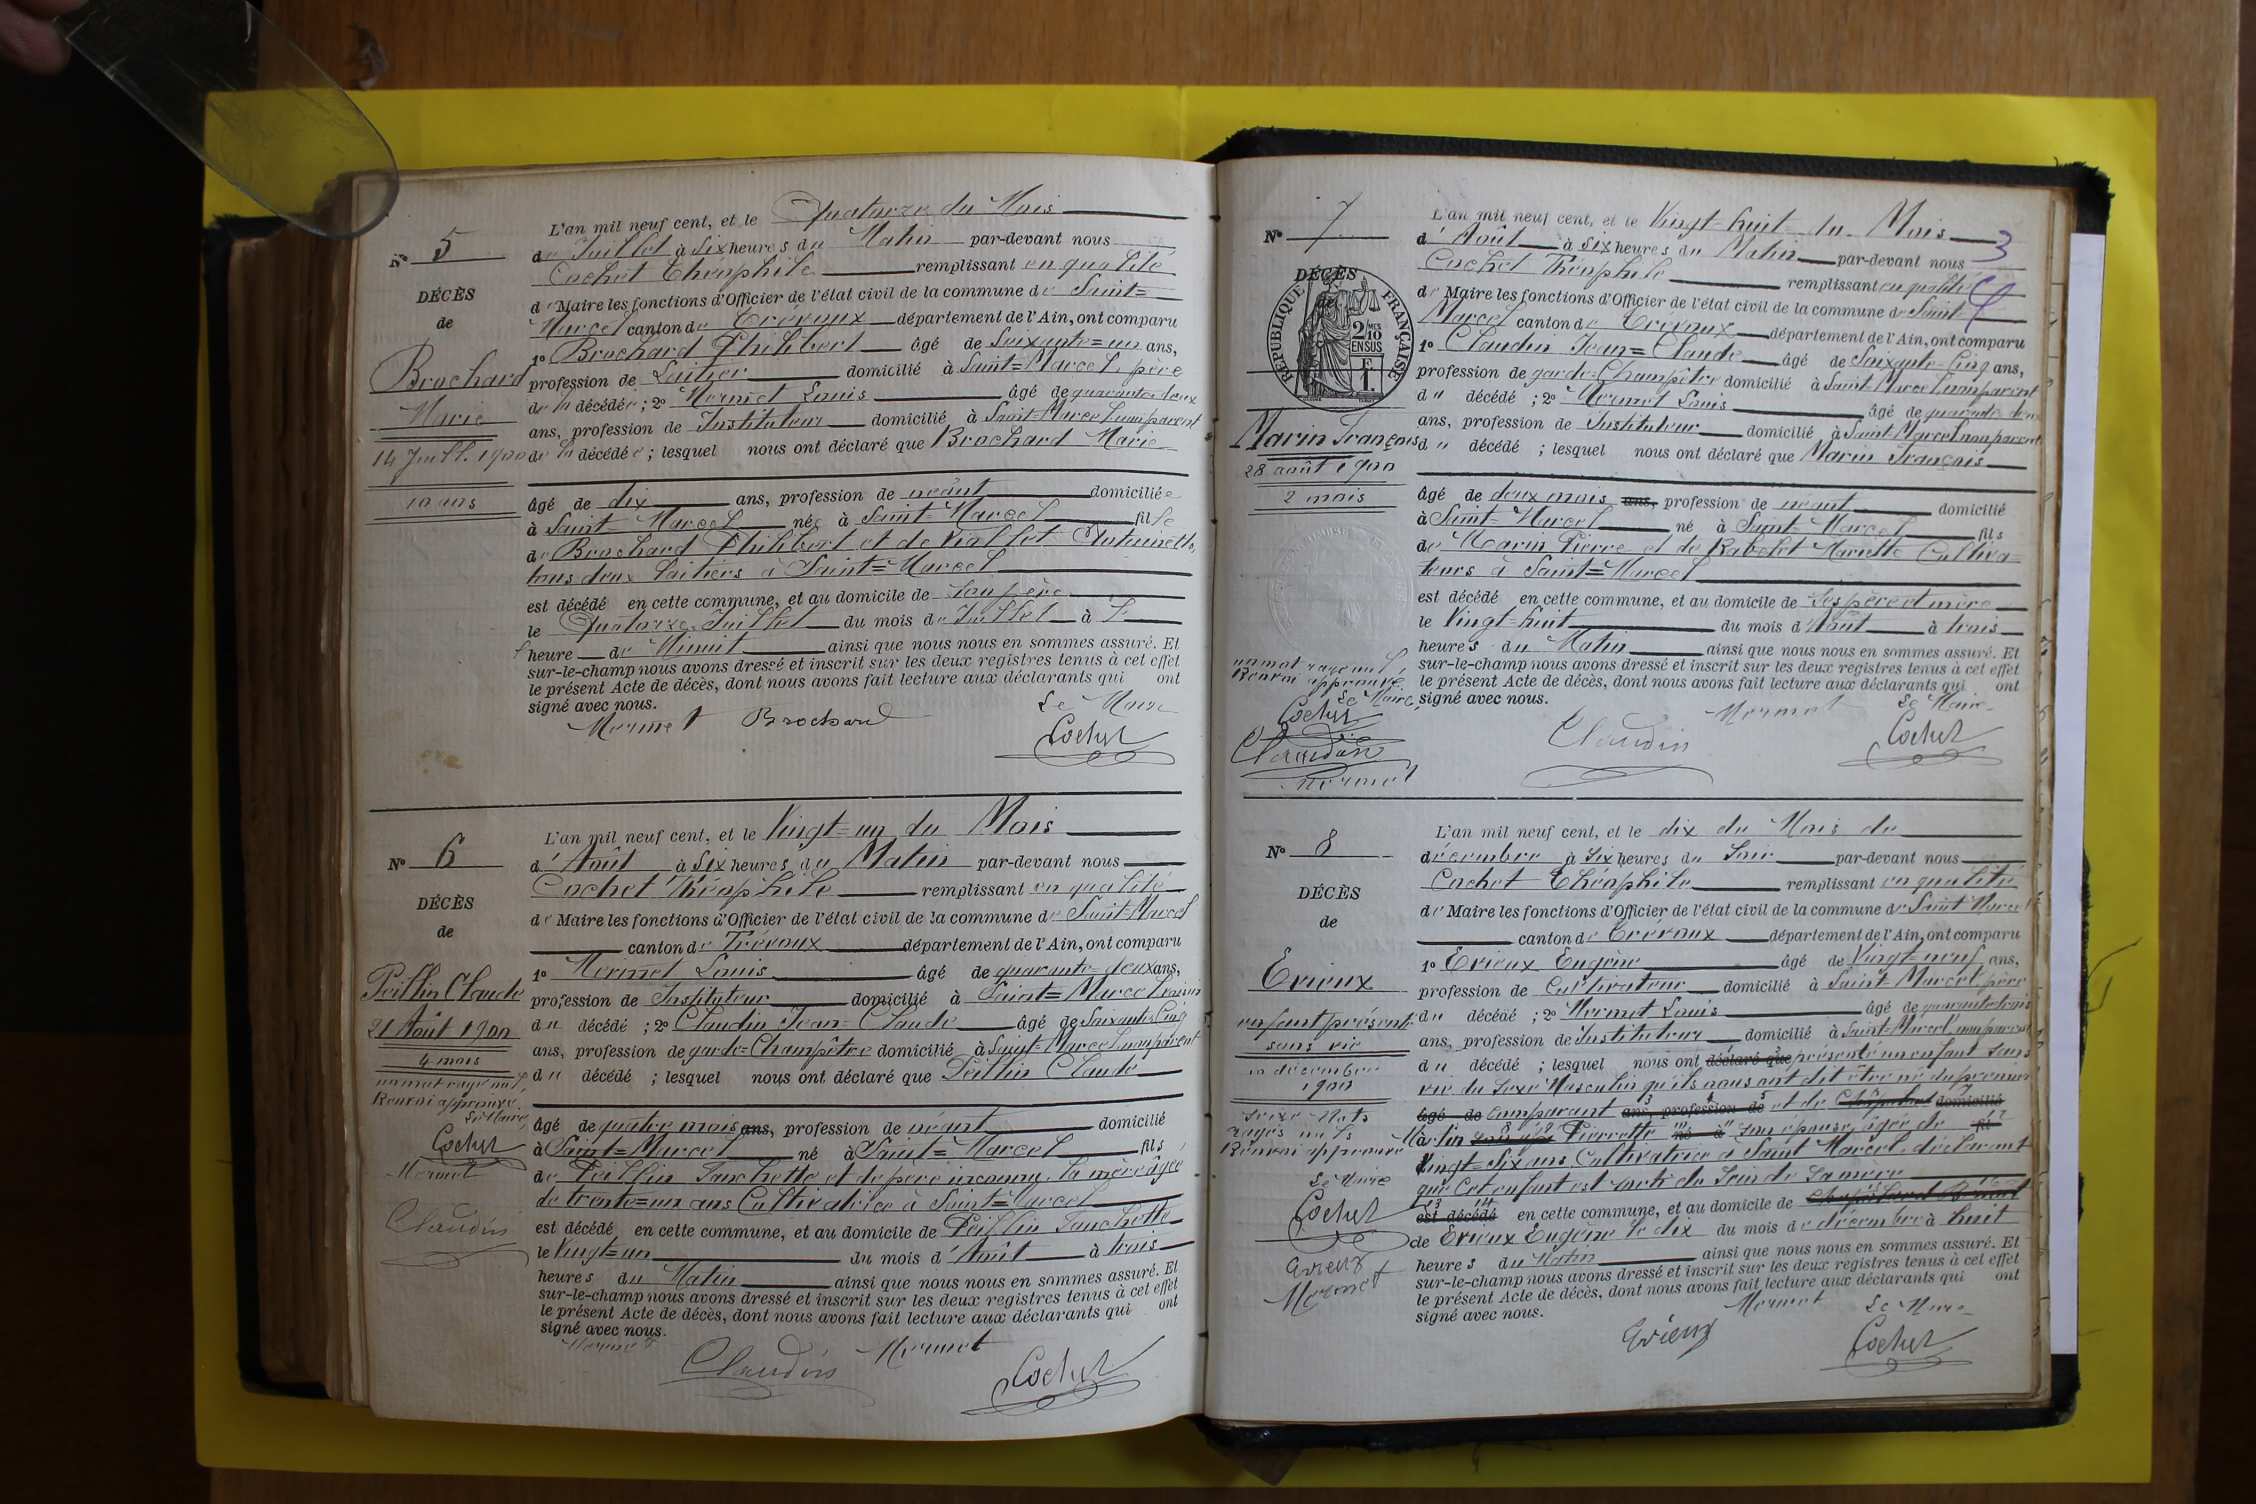 N° 5
DÉCÈS
de
Brochard
Marie
14 Juill. 1900
10 ans
L'an mil neuf cent, et le Quatorze du Mois
de Juillet à Six heures du Matin par-devant nous
Cochet Théophile remplissant en qualité
de Maire les fonctions d'Officier de l'état civil de la commune de Saint=
Marcel canton de Trévoux département de l'Ain, ont comparu
1° Brochard Philibert âgé de Soixante=un ans,
profession de Laitier domicilié à Saint=Marcel, père
de la décédée; 2° Mermet Louis âgé de quarante deux
ans, profession de Instituteur domicilié à Saint Marcel non parent
de la décédée; lesquel nous ont déclaré que Brochard Marie
âgé de dix ans, profession de néant domiciliée
à Saint Marcel née à Saint=Marcel fille
de Brochard Philibert et de Viallet Antoinette,
tous deux laitiers à Saint=Marcel
est décédé en cette commune, et au domicile de son père
le Quatorze Juillet du mois de Juillet à
heure de Minuit ainsi que nous nous en sommes assuré. Et
sur-le-champ nous avons dressé et inscrit sur les deux registres tenus à cet effet
le présent Acte de décès, dont nous avons fait lecture aux déclarants qui ont
signé avec nous.
Mermet Brochard Le Maire
Cochet
N° 6
DÉCÈS
de
Peillin Claude
21 Août 1900
4 mois
un mot rayé nul
Renvoi approuvé
Le Maire,
Cochet
Mermet
Claudin
L'an mil neuf cent, et le Vingt=un du Mois
d'Août à Six heures du Matin par-devant nous
Cochet Théophile remplissant en qualité
de Maire les fonctions d'Officier de l'état civil de la commune de Saint=Marcel
canton de Trévoux département de l'Ain, ont comparu
1° Mermet Louis âgé de quarante=deux ans,
profession de Instituteur domicilié à Saint=Marcel
du décédé; 2° Claudin Jean=Claude âgé de Soixante Cinq
ans, profession de garde=Champêtre domicilié à Saint Marcel non parent
du décédé; lesquel nous ont déclaré que Peillin Claude
âgé de quatre mois ans, profession de néant domicilié
à Saint=Marcel né à Saint=Marcel fils
de Peillin Fanchette et de père inconnu, la mère âgée
de trente=un ans Cultivatrice à Saint=Marcel
est décédé en cette commune, et au domicile de Peillin Fanchette
le Vingt=un du mois d'Août à trois
heures du Matin ainsi que nous nous en sommes assuré. Et
sur-le-champ nous avons dressé et inscrit sur les deux registres tenus à cet effet
le présent Acte de décès, dont nous avons fait lecture aux déclarants qui ont
signé avec nous.
Mermet
Claudin Mermet Cochet
3
4
N° 7
DÉCÈS
de
RÉPUBLIQUE FRANÇAISE
2/10 MES
EN SUS
F.
1.
Marin François
28 août 1900
2 mois
un mot rayé nul,
Renvoi approuvé
Le Maire,
Cochet
Claudin
Mermet
L'an mil neuf cent, et le Vingt=huit du Mois
d'Août à six heures du Matin par-devant nous
Cochet Théophile remplissant en qualité
de Maire les fonctions d'Officier de l'état civil de la commune de Saint
Marcel canton de Trévoux département de l'Ain, ont comparu
1° Claudin Jean=Claude âgé de Soixante=Cinq ans,
profession de garde=Champêtre domicilié à Saint Marcel non parent
du décédé; 2° Mermet Louis âgé de quarante deux
ans, profession de Instituteur domicilié à Saint Marcel non parent
du décédé; lesquel nous ont déclaré que Marin François
âgé de deux mois ans, profession de néant domicilié
à Saint=Marcel né à Saint=Marcel fils
de Marin Pierre et de Rabelet Mariette Cultiva=
teurs à Saint=Marcel
est décédé en cette commune, et au domicile de Ses père et mère
le Vingt=huit du mois d'Août à trois
heures du Matin ainsi que nous nous en sommes assuré. Et
sur-le-champ nous avons dressé et inscrit sur les deux registres tenus à cet effet
le présent Acte de décès, dont nous avons fait lecture aux déclarants qui ont
signé avec nous.
Claudin Mermet Le Maire
Cochet
N° 8
DÉCÈS
de
Erieux
enfant présenté
sans vie
10 décembre
1900
Seize Mots
rayés nuls
Renvoi approuvé
Le Maire
Cochet
Erieux
Mermet
L'an mil neuf cent, et le dix du Mois de
décembre à Six heures du Soir par-devant nous
Cochet Théophile remplissant en qualité
de Maire les fonctions d'Officier de l'état civil de la commune de Saint Marcel
canton de Trévoux département de l'Ain, ont comparu
1° Erieux Eugène âgé de Vingt=neuf ans,
profession de Cultivateur domicilié à Saint Marcel père
du décédé; 2° Mermet Louis âgé de quarante trois
ans, profession de Instituteur domicilié à Saint=Marcel non parent
du décédé; lesquel nous ont déclaré que présenté un enfant sans
vie du Sexe Masculin qu'ils nous ont dit être né du premier
âgé de comparant ans, profession de et de domicilié
Martin Pierrette né à son épouse âgée de fil
Vingt=Six ans Cultivatrice à Saint Marcel déclarant
que Cet enfant est sorti du Sein de Sa mère
est décédé en cette commune, et au domicile de
de Erieux Eugène le dix du mois de décembre à huit
heures du Matin ainsi que nous nous en sommes assuré. Et
sur-le-champ nous avons dressé et inscrit sur les deux registres tenus à cet effet
le présent Acte de décès, dont nous avons fait lecture aux déclarants qui ont
signé avec nous.
Mermet Le Maire
Erieux Cochet